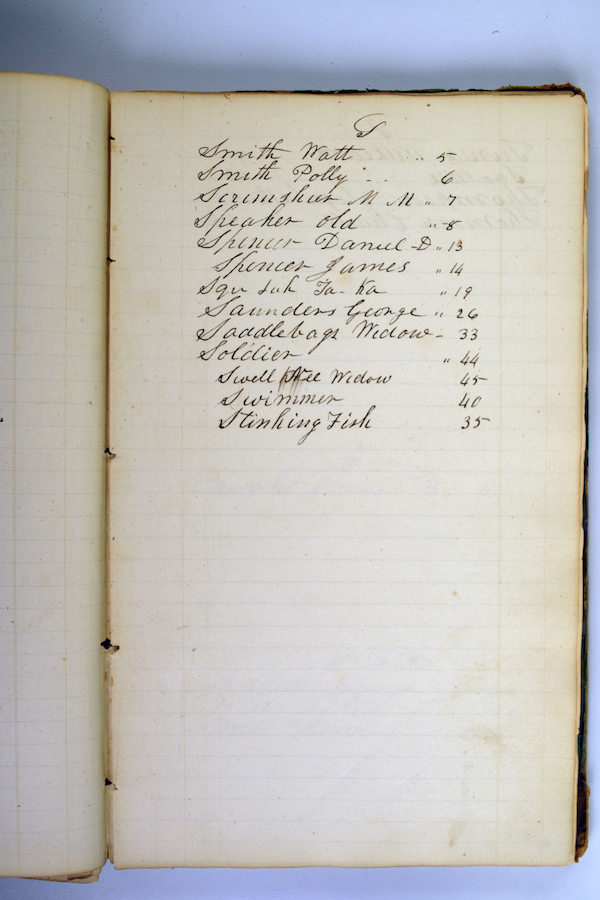 S
Smith Watt " 5
Smith Polly " 6
Scrimshur M M " 7
Speaker old " 8
Spencer Daniel D " 13
Spencer James " 14
Squ Ta-Ka " 19
Saunders George " 26
Saddlebags Widow - 33
Soldier " 44
Swell Widow 45
Swimmer 40
Stinking Fish 35